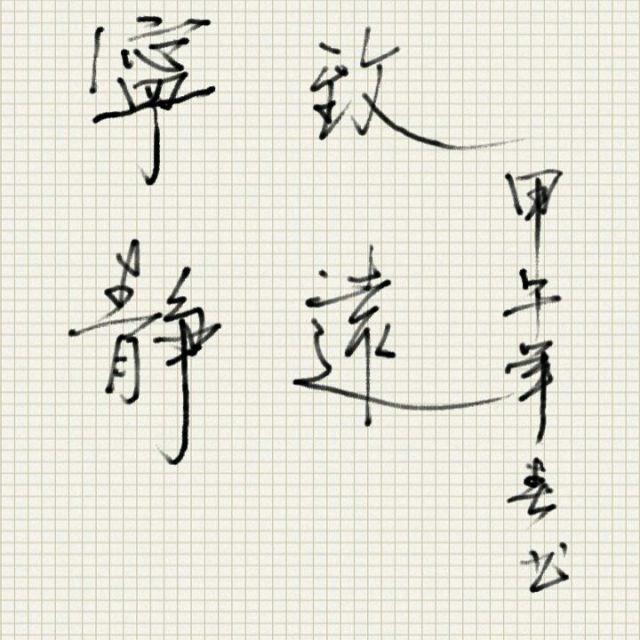 寧靜
致遠
甲午年春书